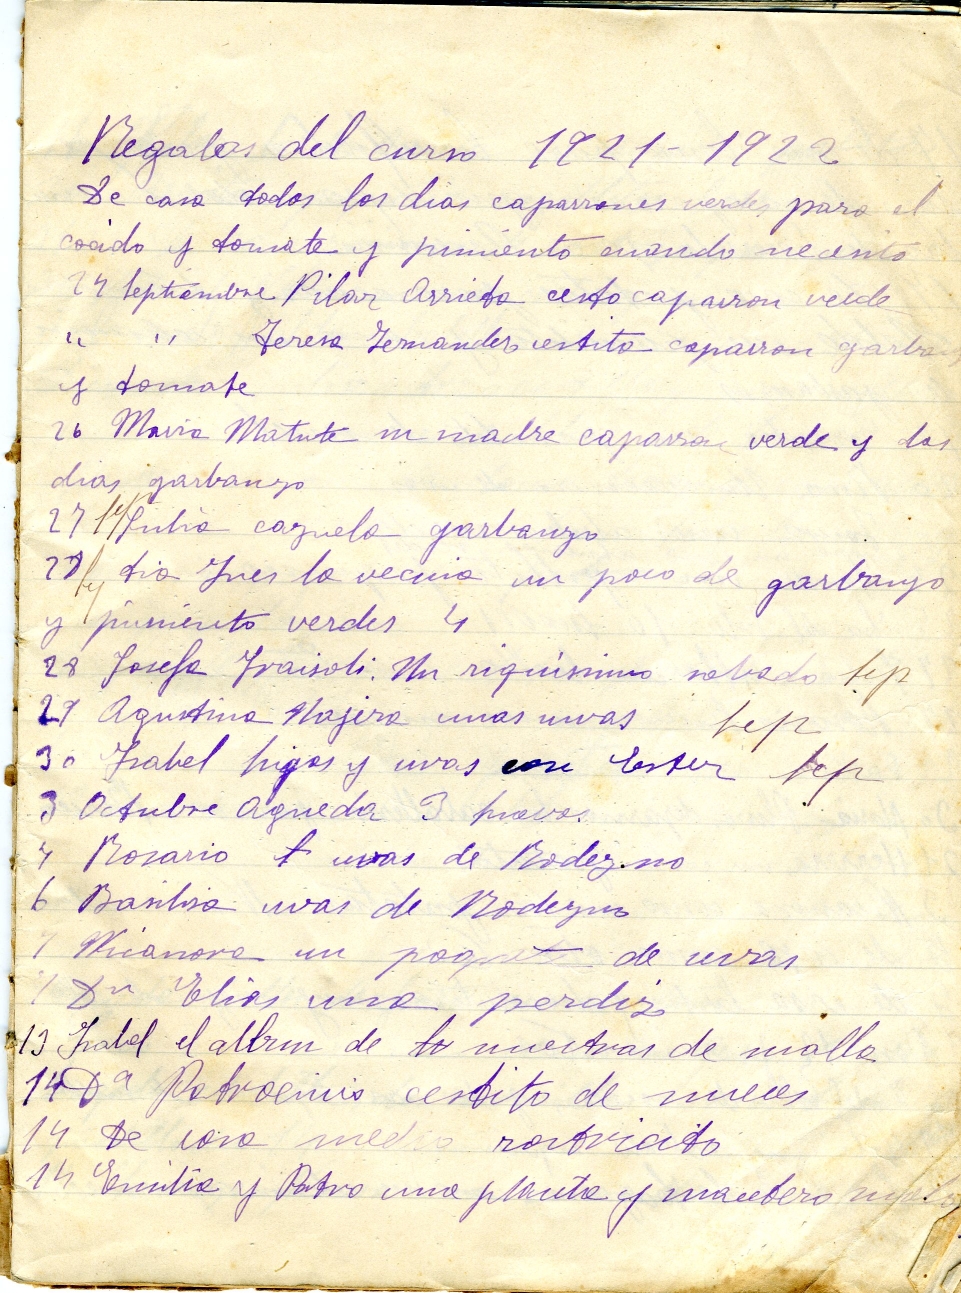 Regalos del curso 1921-1922
De casa todos los dias caparrones verdes para el
cocido y tomate y pimiento cuando necesito
24 Septiembre Pilar Arrieta cesto caparron verde
" " Teresa Fernandez cestito caparron garbanzo
y tomate
26 Maria Matute su madre caparron verde y dos
dias garbanzo
27 Julia cazuela garbanzo
27 tia Ines la vecina un poco de garbanzo
y pimiento verdes
28 Josefa Un riquisimo sobado
29 Agustina Najera unas uvas
30 Isabel higos y uvas con Ester
3 Octubre Agueda 3
4 Rosario uvas de Rodezno
6 Basilisa uvas de Rodezno
7 Nicanora un de uvas
7 Dn Elias una perdiz
13 Isabel el album de muestras de malla
14 Dª Patrocinio cestito de nueces
14 De casa medio rostricito
14 Emilia y Patro una planta y